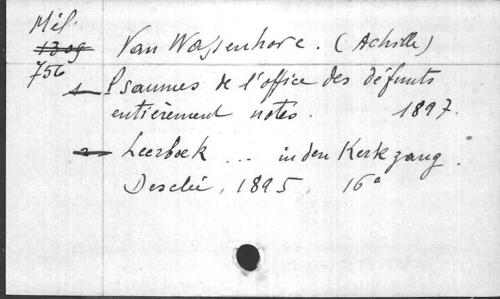 Mél.
1309
756
Van Wassenhove. (Achille)
1 Psaumes de l'office des défunts
entièrement notés. 1897.
2 Leerboek ... in den Kerkzang.
Desclée, 1895, 16°